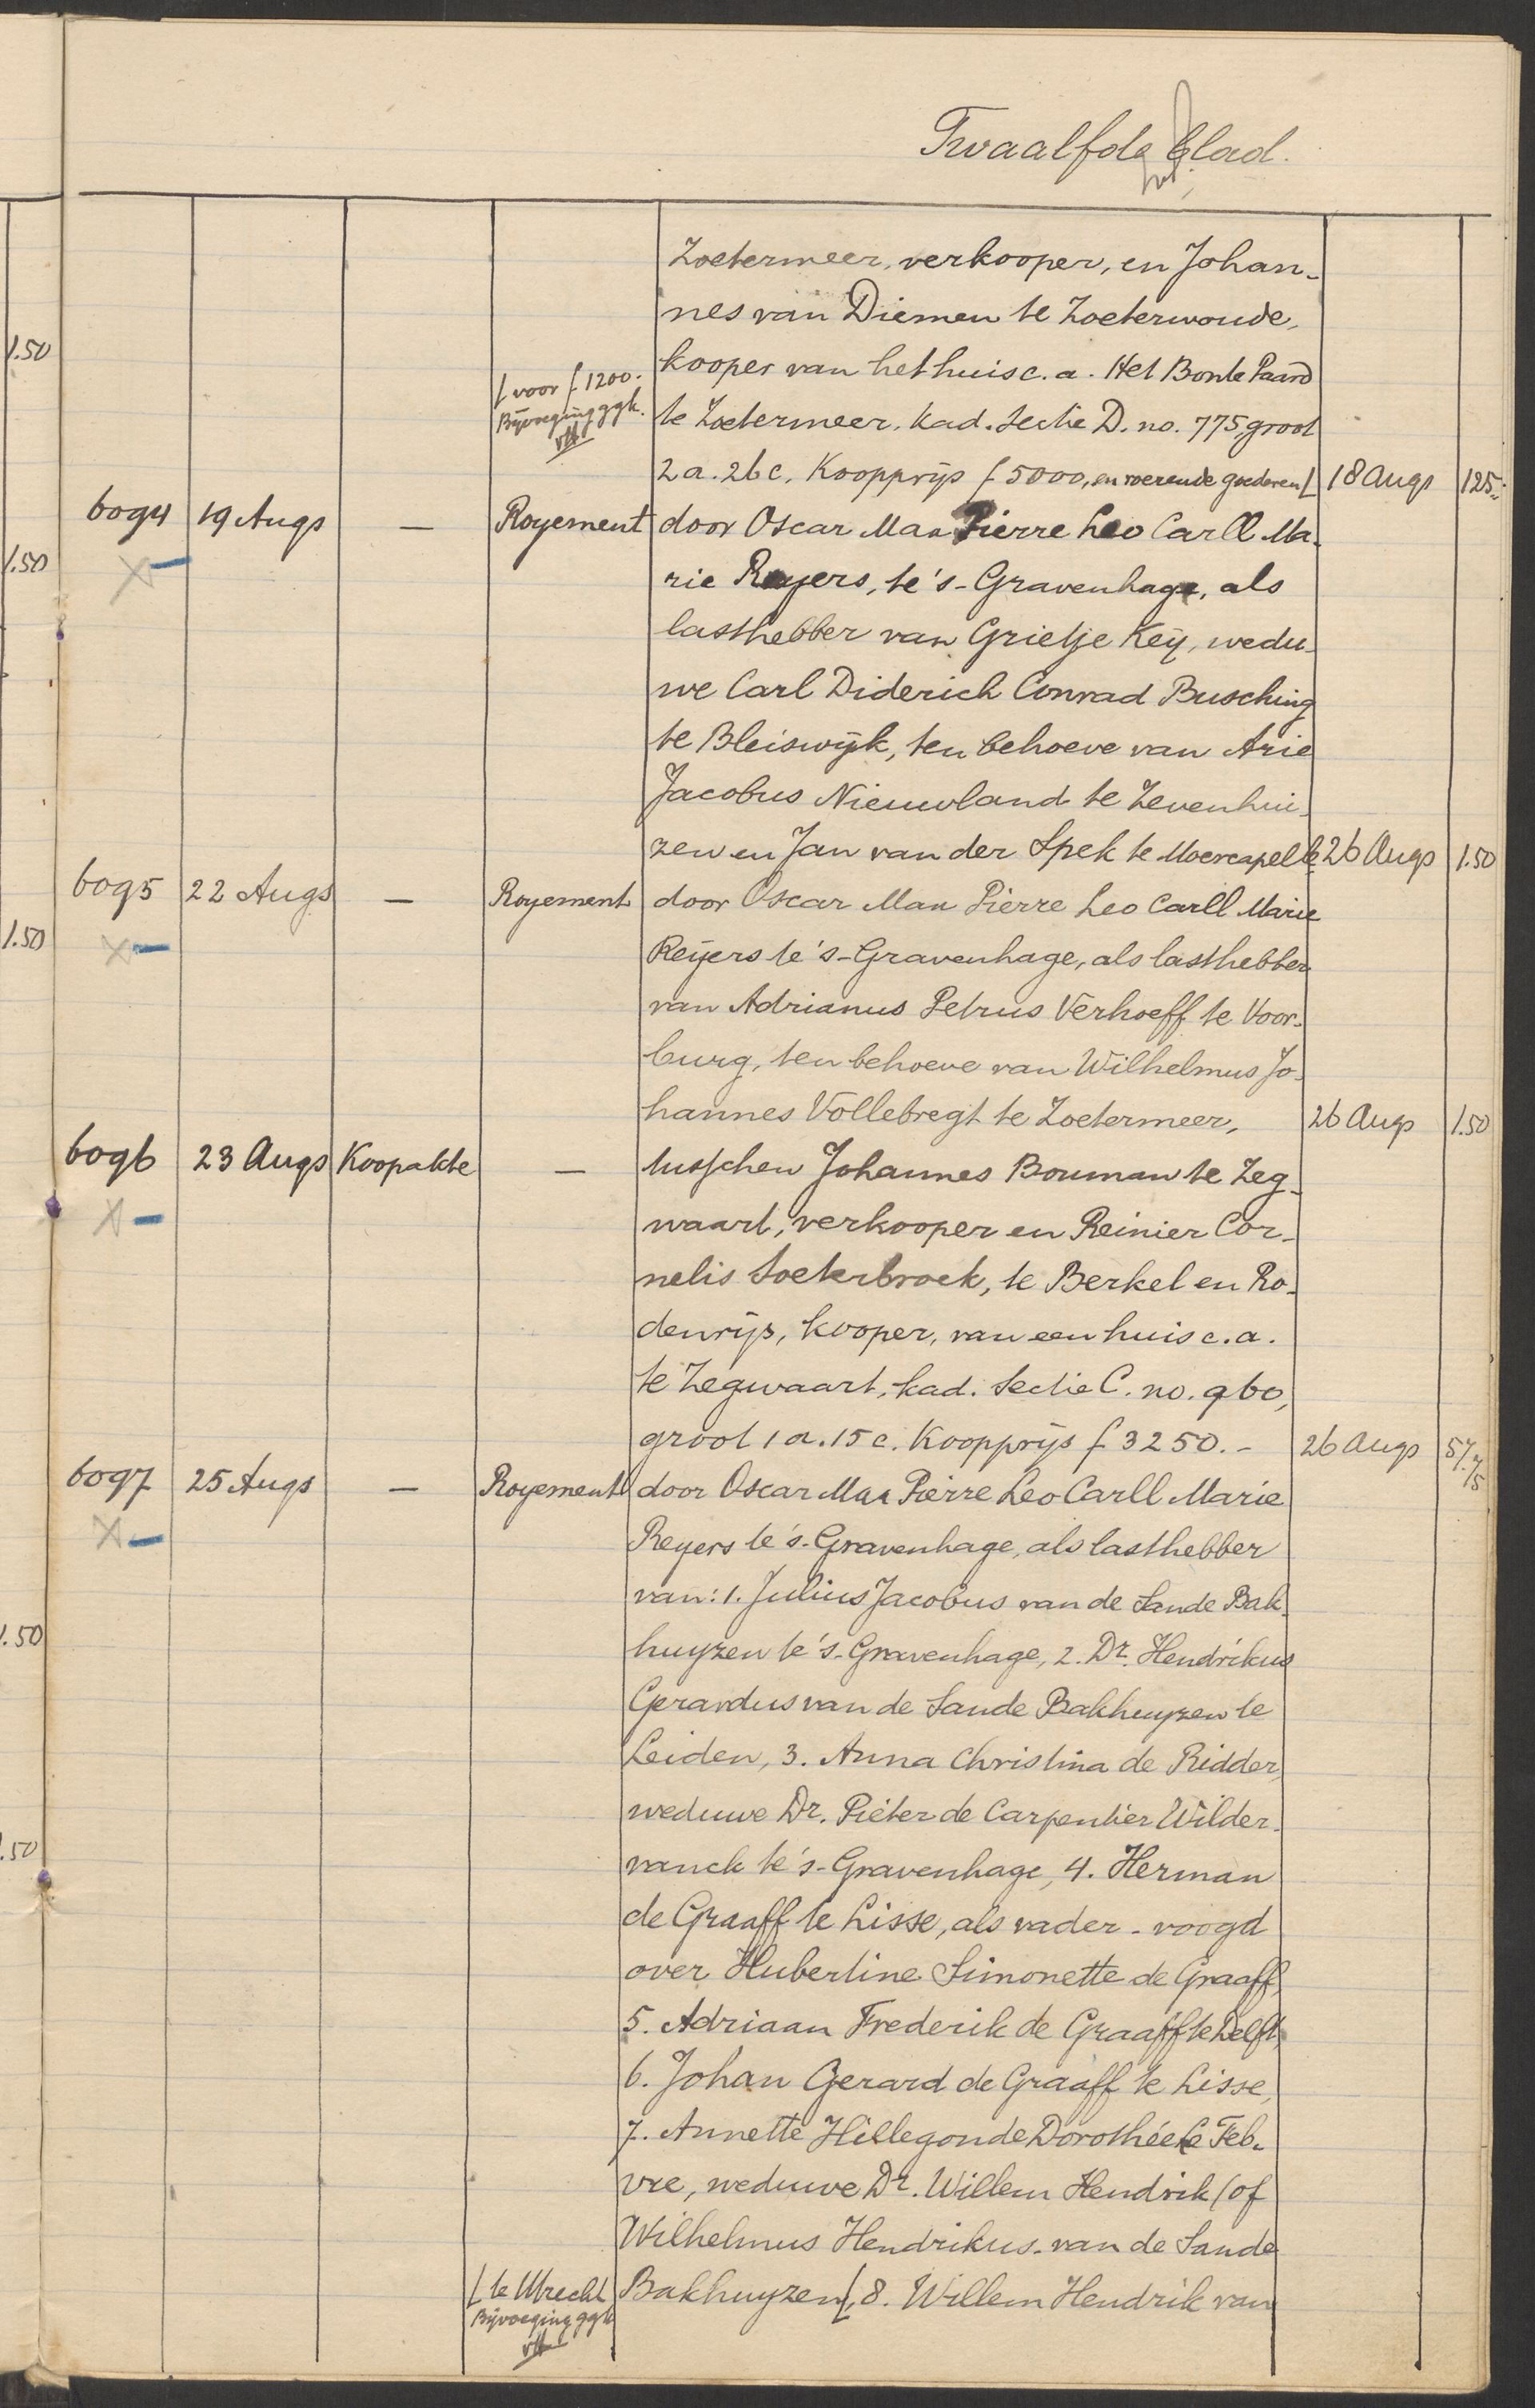 Twaalfde blad.
Zoetermeer, verkooper, en Johan-
nes van Diemen te Zoeterwoude,
1.50
kooper van het huis c.a. Het Bonte Paard
[ voor f 1200.
Bijvoeging ggk.
te Zoetermeer, kad. sectie D. no. 775, groot
2 a. 26 c. Koopprijs f 5000, en roerende goederen [ 18 Augs 125.-
6094 19 Augs — Royement door Oscar Max Pierre Leo Carll Ma-
1.50
rie Reyers, te 's-Gravenhage, als
lasthebber van Grietje Key, wedu-
we Carl Diderich Conrad Busching
te Bleiswijk, ten behoeve van Arie
Jacobus Nieuwland te Zevenhui-
zen en Jan van der Spek te Moercapelle 26 Augs 1.50
6095 22 Augs — Royement door Oscar Max Pierre Leo Carll Marie
1.50
Reijers te 's-Gravenhage, als lasthebber
van Adrianus Petrus Verhoeff te Voor-
burg, ten behoeve van Wilhelmus Jo-
hannes Vollebregt te Zoetermeer, 26 Augs 1.50
6096 23 Augs Koopakte — tusschen Johannes Bouman te Zeg-
waart, verkooper en Reinier Cor-
nelis Soeterbroek, te Berkel en Ro-
denrijs, kooper, van een huis c.a.
te Zegwaart, kad. sectie C. no. 960,
groot 1 a. 15 c. Koopprijs f 3250.- 26 Augs 57.75
6097 25 Augs — Royement door Oscar Max Pierre Leo Carll Marie
Reyers te 's-Gravenhage, als lasthebber
van: 1. Julius Jacobus van de Sande Bak-
1.50
huyzen te 's-Gravenhage, 2. Dr. Hendrikus
Gerardus van de Sande Bakhuyzen te
Leiden, 3. Anna Christina de Ridder,
weduwe Dr. Pieter de Carpentier Wilder-
.50
vanck te 's-Gravenhage, 4. Herman
de Graaff te Lisse, als vader-voogd
over Hubertine Simonette de Graaff,
5. Adriaan Frederik de Graaff te Delft,
6. Johan Gerard de Graaff te Lisse,
7. Annette Hillegonde Dorothée le Feb-
vre, weduwe Dr. Willem Hendrik (of
Wilhelmus Hendrikus- van de Sande
[ te Utrecht
Bijvoeging ggk
Bakhuyzen [, 8. Willem Hendrik van